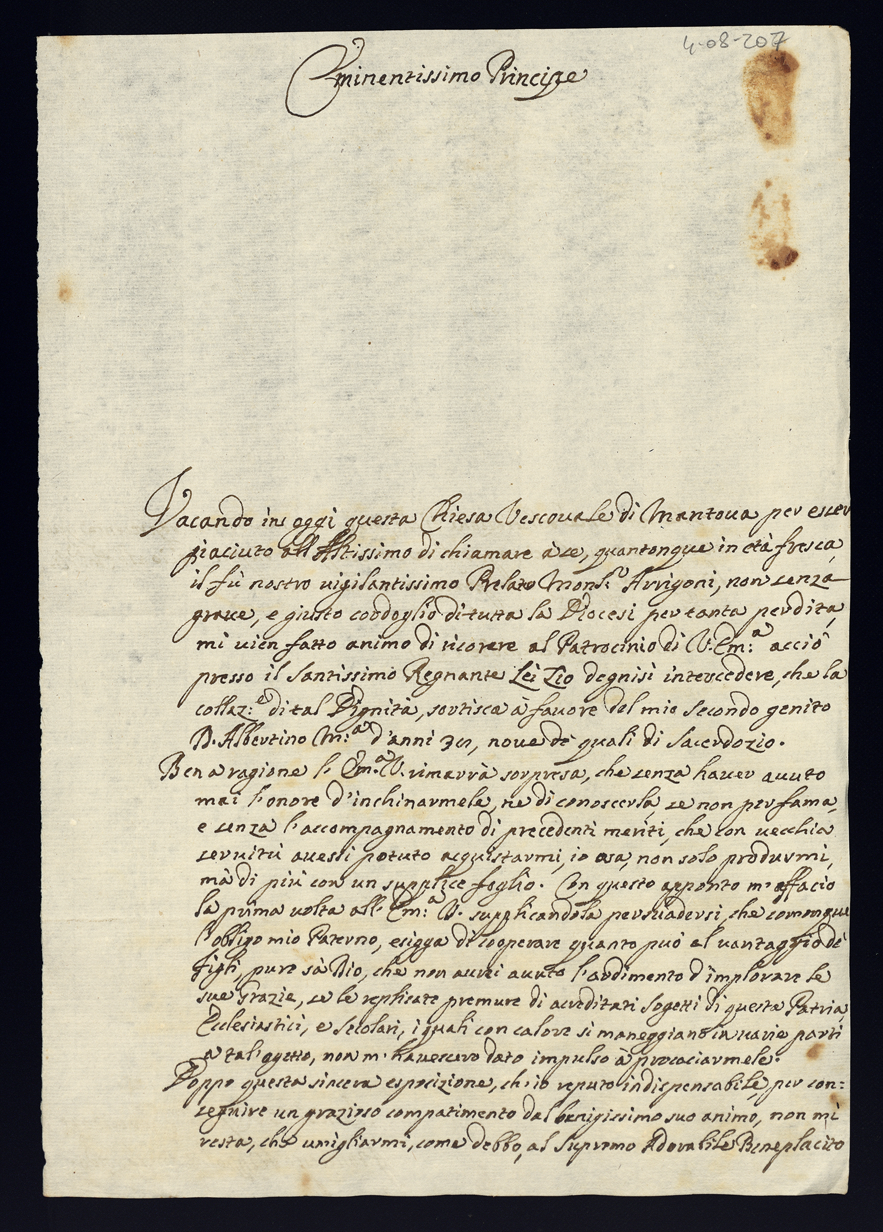 4-08-207
Eminentissimo Principe
Vacando in oggi questa Chiesa Vescovale di Mantoua per esser
piaciuto all'Altissimo di chiamare à se, quantonque in età fresca,
il fù nostro uigilantissimo Prelato Mons.r Arrigoni, non senza
graue, e giusto cordoglio di tutta la Diocesi per tanta perdita,
mi uien fatto animo di ricorere al Patrocinio di V: Em:a acciò
presso il Santissimo Regnante Lei Zio degnisi intercedere, che la
collaz:e di tal Dignità, sortisca à fauore del mio secondo genito
D. Albertino M:a d'anni 30, noue de quali di Sacerdozio.
Ben a ragione l'Em:a V. rimarrà sorpresa, che senza hauer auuto
mai l'onore d'inchinarmele, ne di conoscerla se non per fama,
e senza l'accompagnamento di precedenti meriti, che con uecchia
seruitù auessi potuto acquistarmi, io osa, non solo produrmi,
mà di più con un supplice foglio. Con questo apponto m'affacio
la prima uolta all'Em:a V. supplicandola persuadersi, che comonque
l'obligo mio Paterno, esigga di cooperare quanto può al uantaggio de
figli, pure sà Dio, che non aurei auuto l'ardimento d'implorare le
sue Grazie, se le replicate premure di acreditati Sogetti di questa Patria,
Ecclesiastici, e Secolari, i quali con calore si maneggiano in uarie parti
a tal'ogetto, non m'hauessero dato impulso à procaciarmele.
Doppo questa sincera esposizione, ch'io reputo indispensabile, per con:
seguire un grazioso compatimento dal benigissimo suo animo, non mi
resta, che umigliarmi, come debbo, al Supremo Adorabile Beneplacito